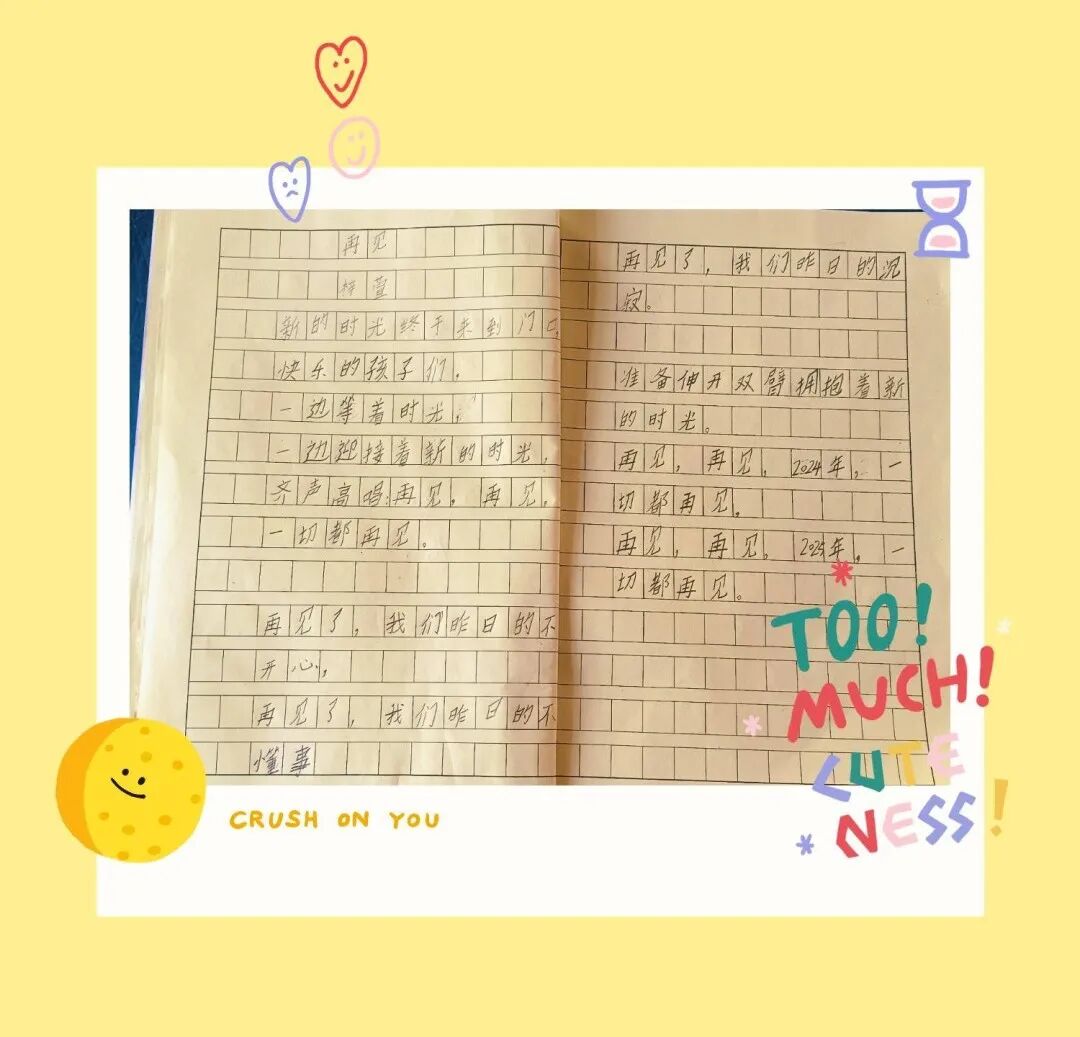 再见
梓萱
新的时光终于来到门口,
快乐的孩子们,
一边等着时光,
一边迎接着新的时光,
齐声高唱:再见,再见,
一切都再见。
再见了,我们昨日的不
开心,
再见了,我们昨日的不
懂事
再见了,我们昨日的沉
寂。
准备伸开双臂拥抱着新
的时光。
再见,再见,2024年,一
切都再见,
再见,再见,2025年,一
切都再见。
TOO!
MUCH!
CUTE
NESS!
CRUSH ON YOU